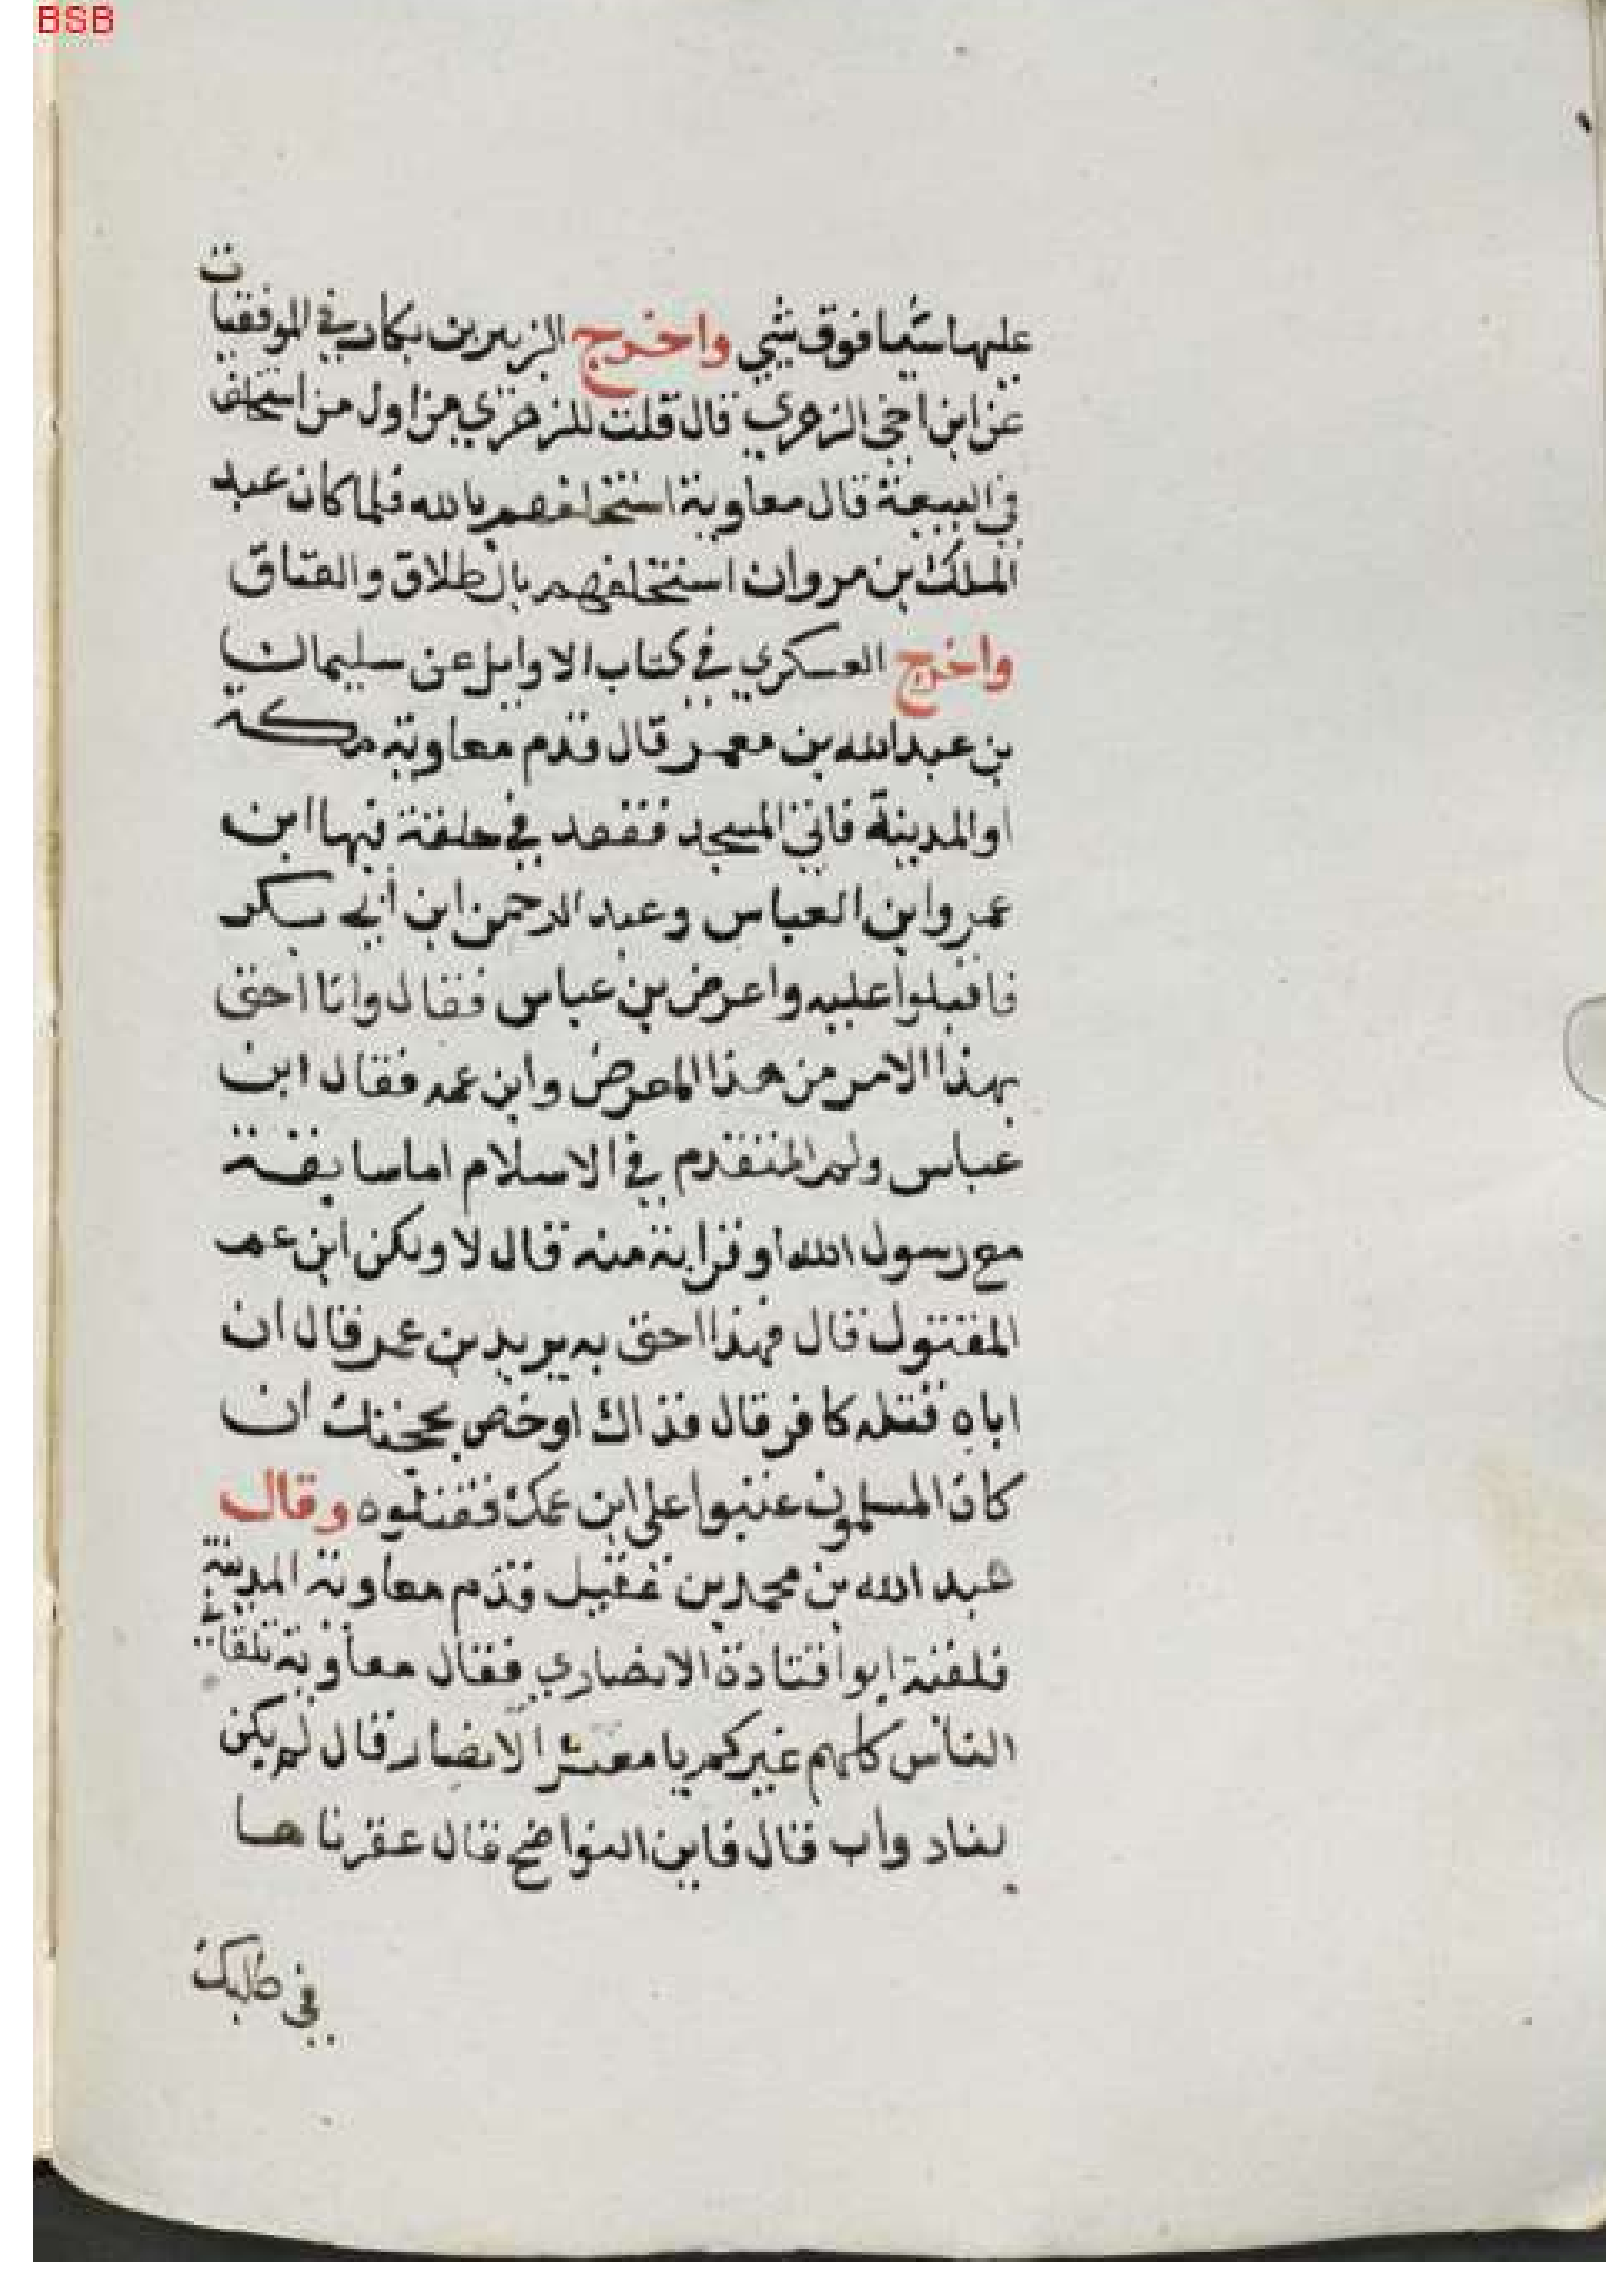 BSB
عليها شيا فوق شي واخرج الزبير بن بكار في الموفقيات
عن ابن اخي الزهري قال قلت للزهري من اول من استحلف
في البيعة قال معاوية استحلفهم بالله فلما كان عبد
الملك بن مروان استحلفهم بالطلاق والعتاق
واخرج العسكري في كتاب الاوايل عن سليمان
بن عبد الله بن معمر قال قدم معاوية مكة
او المدينة فاتى المسجد فقعد في حلقة فيها ابن
عمر وابن العباس وعبد الرحمن ابن ابي بكر
فاقبلوا عليه واعرض بن عباس فقال وانا احق
بهذا الامر من هذا المعرض وابن عمه فقال ابن
عباس ولم المتقدم في الاسلام اما سابقة
مع رسول الله او قرابة منه قال لا ولكن ابن عم
المقتول قال فهذا احق به يريد بن عمر قال ان
اباه قتله كافر قال فذاك اوخص بحجتك ان
كان المسلمون عتبوا على ابن عمك فقتلوه وقال
عبد الله بن محمد بن عقيل قدم معاوية المدينة
فلقية ابوا قتادة الانصاري فقال معاوية تلقاني
الناس كلهم غيركم يا معشر الانصار قال لم يكن
لنا دواب قال فاين النواضح قال عقرناها
في طلبك